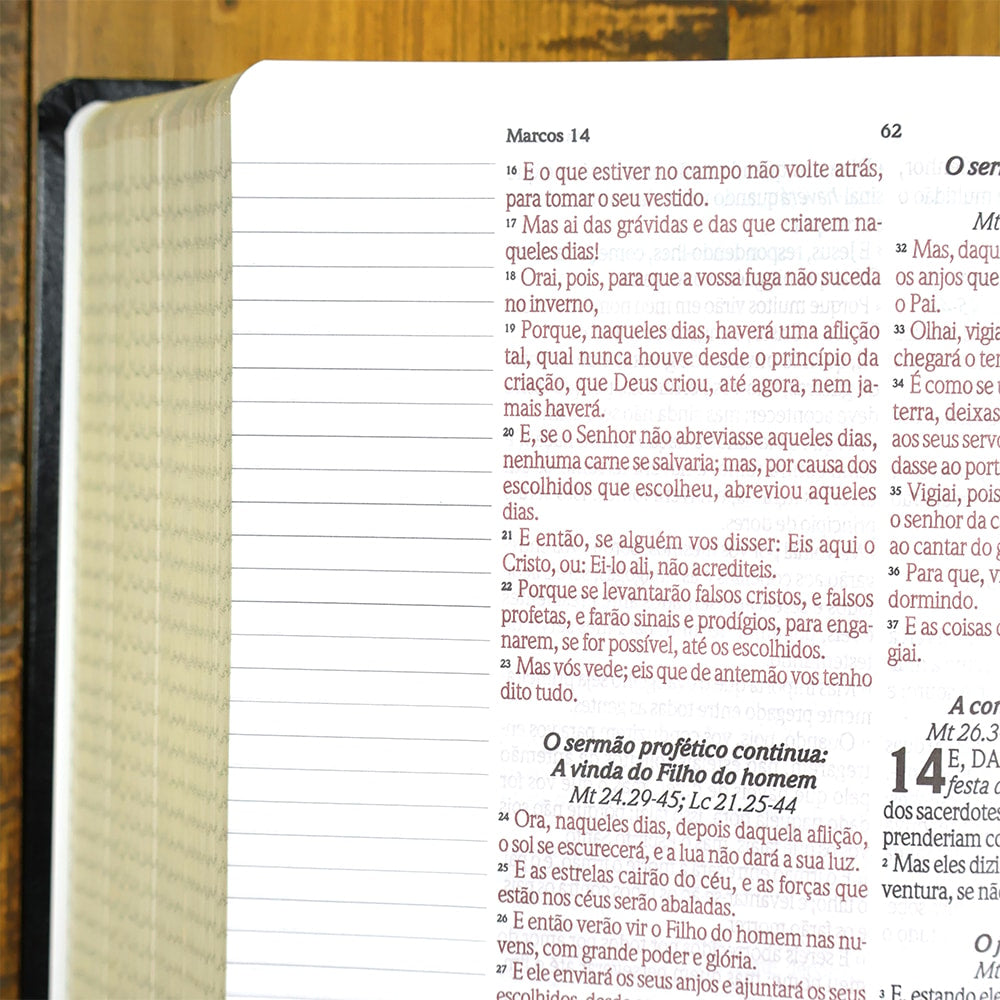 Marcos 14
62
16 E o que estiver no campo não volte atrás,
para tomar o seu vestido.
17 Mas ai das grávidas e das que criarem na-
queles dias!
18 Orai, pois, para que a vossa fuga não suceda
no inverno,
19 Porque, naqueles dias, haverá uma aflição
tal, qual nunca houve desde o princípio da
criação, que Deus criou, até agora, nem ja-
mais haverá.
20 E, se o Senhor não abreviasse aqueles dias,
nenhuma carne se salvaria; mas, por causa dos
escolhidos que escolheu, abreviou aqueles
dias.
21 E então, se alguém vos disser: Eis aqui o
Cristo, ou: Ei-lo ali, não acrediteis.
22 Porque se levantarão falsos cristos, e falsos
profetas, e farão sinais e prodígios, para enga-
narem, se for possível, até os escolhidos.
23 Mas vós vede; eis que de antemão vos tenho
dito tudo.
O sermão profético continua:
A vinda do Filho do homem
Mt 24.29-45; Lc 21.25-44
24 Ora, naqueles dias, depois daquela aflição,
o sol se escurecerá, e a lua não dará a sua luz.
25 E as estrelas cairão do céu, e as forças que
estão nos céus serão abaladas.
26 E então verão vir o Filho do homem nas nu-
vens, com grande poder e glória.
27 E ele enviará os seus anjos e ajuntará os seus
escolhidos, desde
O ser
Mt
32 Mas, daqu
os anjos que
o Pai.
33 Olhai, vigia
chegará o te
34 É como se
terra, deixas
aos seus servo
dasse ao port
35 Vigiai, pois
o senhor da c
ao cantar do g
36 Para que, v
dormindo.
37 E as coisas
giai.
A co
Mt 26.3
14 E, DA
festa
dos sacerdotes
prenderiam co
2 Mas eles dizi
ventura, se nã
O
Mt
3 E, estando ele